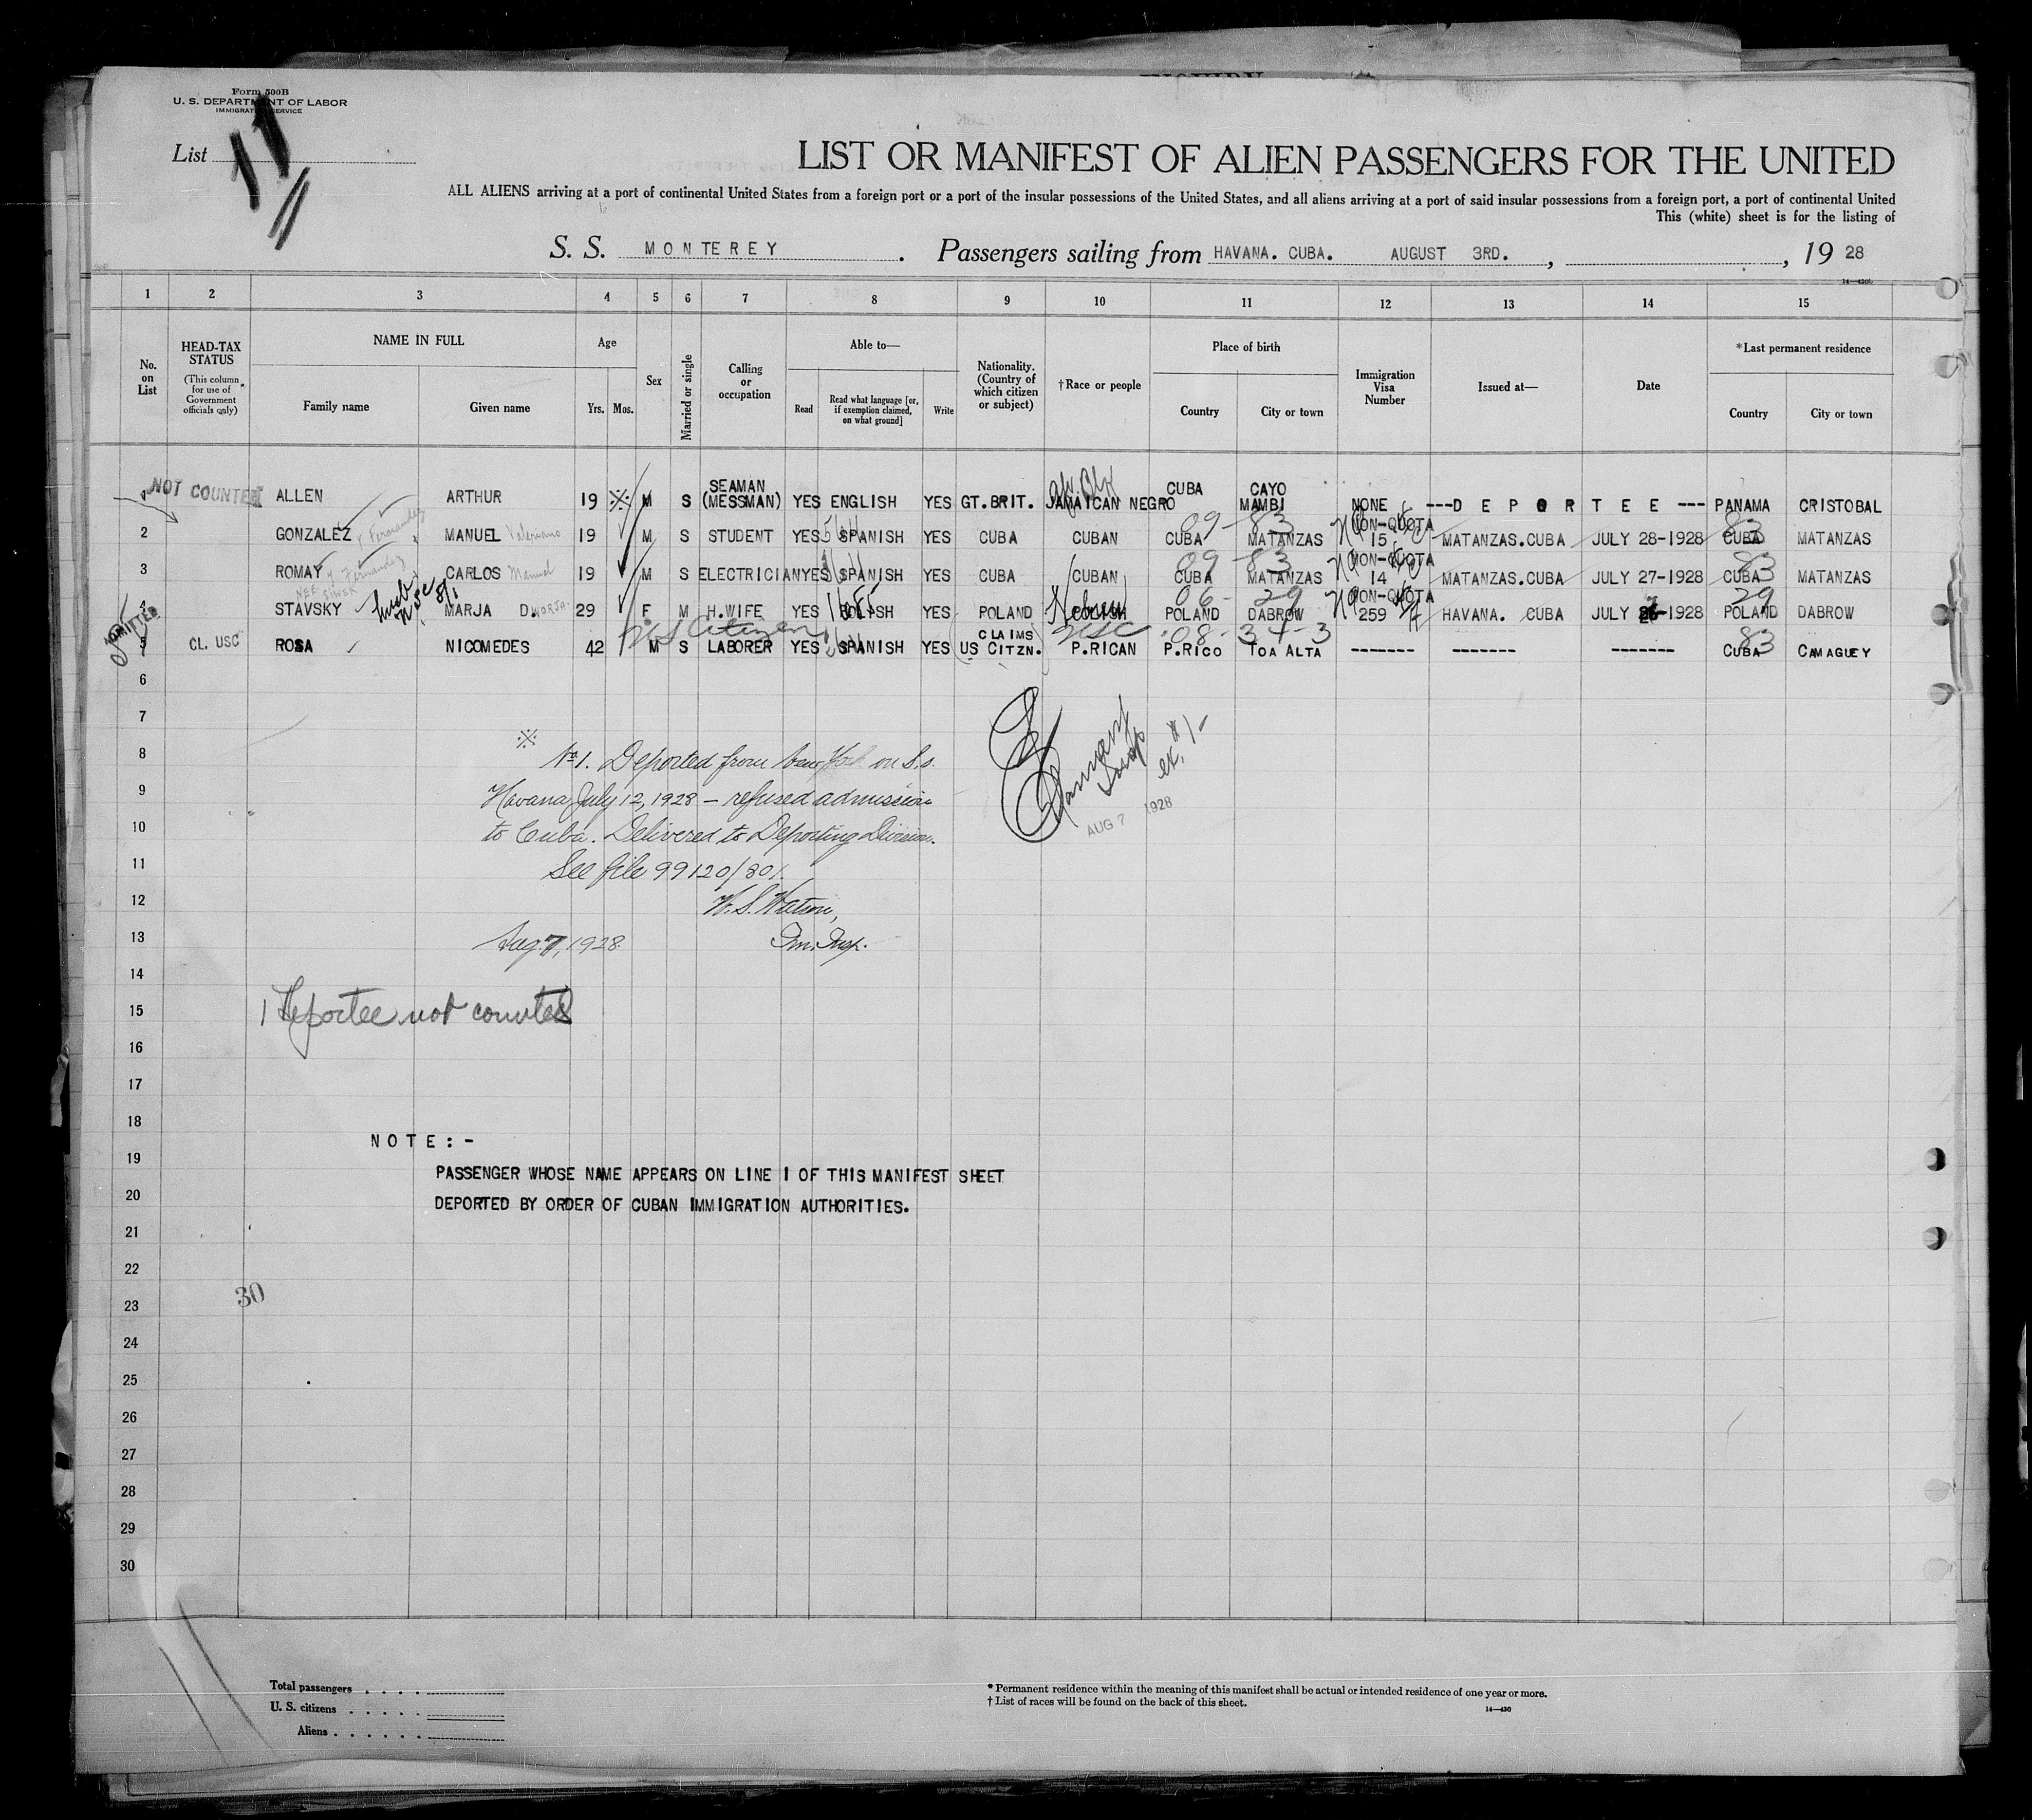 Form 500B
U. S. DEPARTMENT OF LABOR
IMMIGRATION SERVICE
List 11
LIST OR MANIFEST OF ALIEN PASSENGERS FOR THE UNITED
ALL ALIENS arriving at a port of continental United States from a foreign port or a port of the insular possessions of the United States, and all aliens arriving at a port of said insular possessions from a foreign port, a port of continental United
This (white) sheet is for the listing of
S. S. MONTEREY . Passengers sailing from HAVANA. CUBA. AUGUST 3RD. , , 19 28
1 2 3 4 5 6 7 8 9 10 11 12 13 14 15
No. on List
HEAD-TAX STATUS (This column for use of Government officials only)
NAME IN FULL
Family name Given name
Age
Yrs. Mos.
Sex
Married or single
Calling or occupation
Able to—
Read
Read what language [or, if exemption claimed, on what ground]
Write
Nationality. (Country of which citizen or subject)
†Race or people
Place of birth
Country City or town
Immigration Visa Number
Issued at—
Date
*Last permanent residence
Country City or town
1 NOT COUNTED ALLEN ARTHUR 19 M S SEAMAN (MESSMAN) YES ENGLISH YES GT.BRIT. JAMAICAN NEGRO CUBA CAYO MAMBI NONE ---DEPORTEE--- PANAMA CRISTOBAL
2 GONZALEZ y Fernandez MANUEL Valeriano 19 M S STUDENT YES SPANISH YES CUBA CUBAN CUBA MATANZAS NON-QUOTA 15 MATANZAS.CUBA JULY 28-1928 CUBA MATANZAS
3 ROMAY y Fernandez CARLOS Manuel 19 M S ELECTRICIAN YES SPANISH YES CUBA CUBAN CUBA MATANZAS NON-QUOTA 14 MATANZAS.CUBA JULY 27-1928 CUBA MATANZAS
4 STAVSKY MARJA D. 29 F M H.WIFE YES POLISH YES POLAND Hebrew POLAND DABROW NON-QUOTA 259 HAVANA. CUBA JULY 1928 POLAND DABROW
ADMITTED
5 CL. USC ROSA NICOMEDES 42 US Citizen M S LABORER YES SPANISH YES CLAIMS US CITZN. USC P.RICAN P.RICO TOA ALTA ------- ------- ------- CUBA CAMAGUEY
09-83
09-83
06-29
08-34-3
83
83
29
83
6
7
8
9
10
11
12
13
14
15
16
17
18
19
20
21
22
23
24
25
26
27
28
29
30
※
No 1. Deported from New York on S.s.
Havana July 12, 1928 – refused admission
to Cuba. Delivered to Deporting Division.
See file 99120/801.
W. S. Watson,
Aug. 7, 1928. Im. Insp.
AUG 7 1928
1 Deportee not counted
NOTE:-
PASSENGER WHOSE NAME APPEARS ON LINE 1 OF THIS MANIFEST SHEET
DEPORTED BY ORDER OF CUBAN IMMIGRATION AUTHORITIES.
30
Total passengers
U. S. citizens
Aliens
* Permanent residence within the meaning of this manifest shall be actual or intended residence of one year or more.
† List of races will be found on the back of this sheet.
14—430